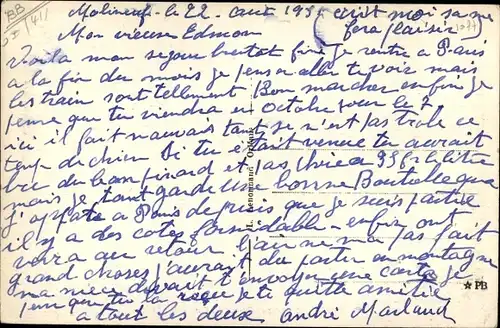 Molineuf. le 22 aout 193 ecrit moi sa me
Mon vieux Edmon fera plaisir
Voila mon sejour bientot fini je rentre a Paris
a la fin du mois je penser aller te voir mais
les train sont tellement Bon marcher enfin je
pense que tu viendra en Octobre pour le 7
ici il fait mauvais tant se n'est pas trole ce
temp de chien Si tu etait venue tu aurait
bu du bon pinard et pas chere a le litre
mais je tant garde une bonne Bouteille que
j'apporte a Paris depuis que je suis partie
il y a des cotes formidable enfin ont
verra au retour l'air ne ma pas fait
grand choses j'aurait du partir en montagne
ma niece devait t envoyer une carte je
pense que tu la reçu je te quitte amitie
a tout les deux André
H. Lenormand Orléans
★ PB